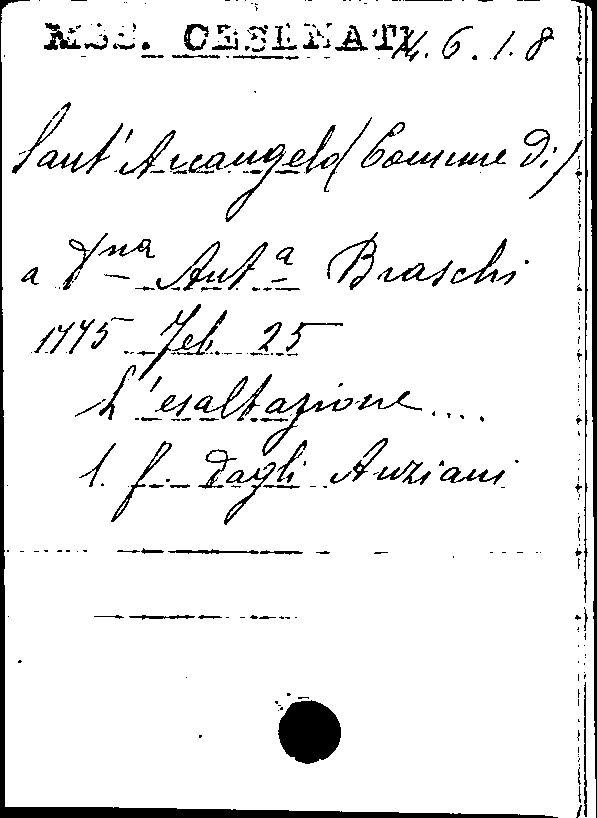 MSS. CESENATI 4.6.1.8
Sant'Arcangelo (Comune di)
a Dna Anta Braschi
1775 Feb. 25
L'esaltazione....
1. f. dagli Anziani